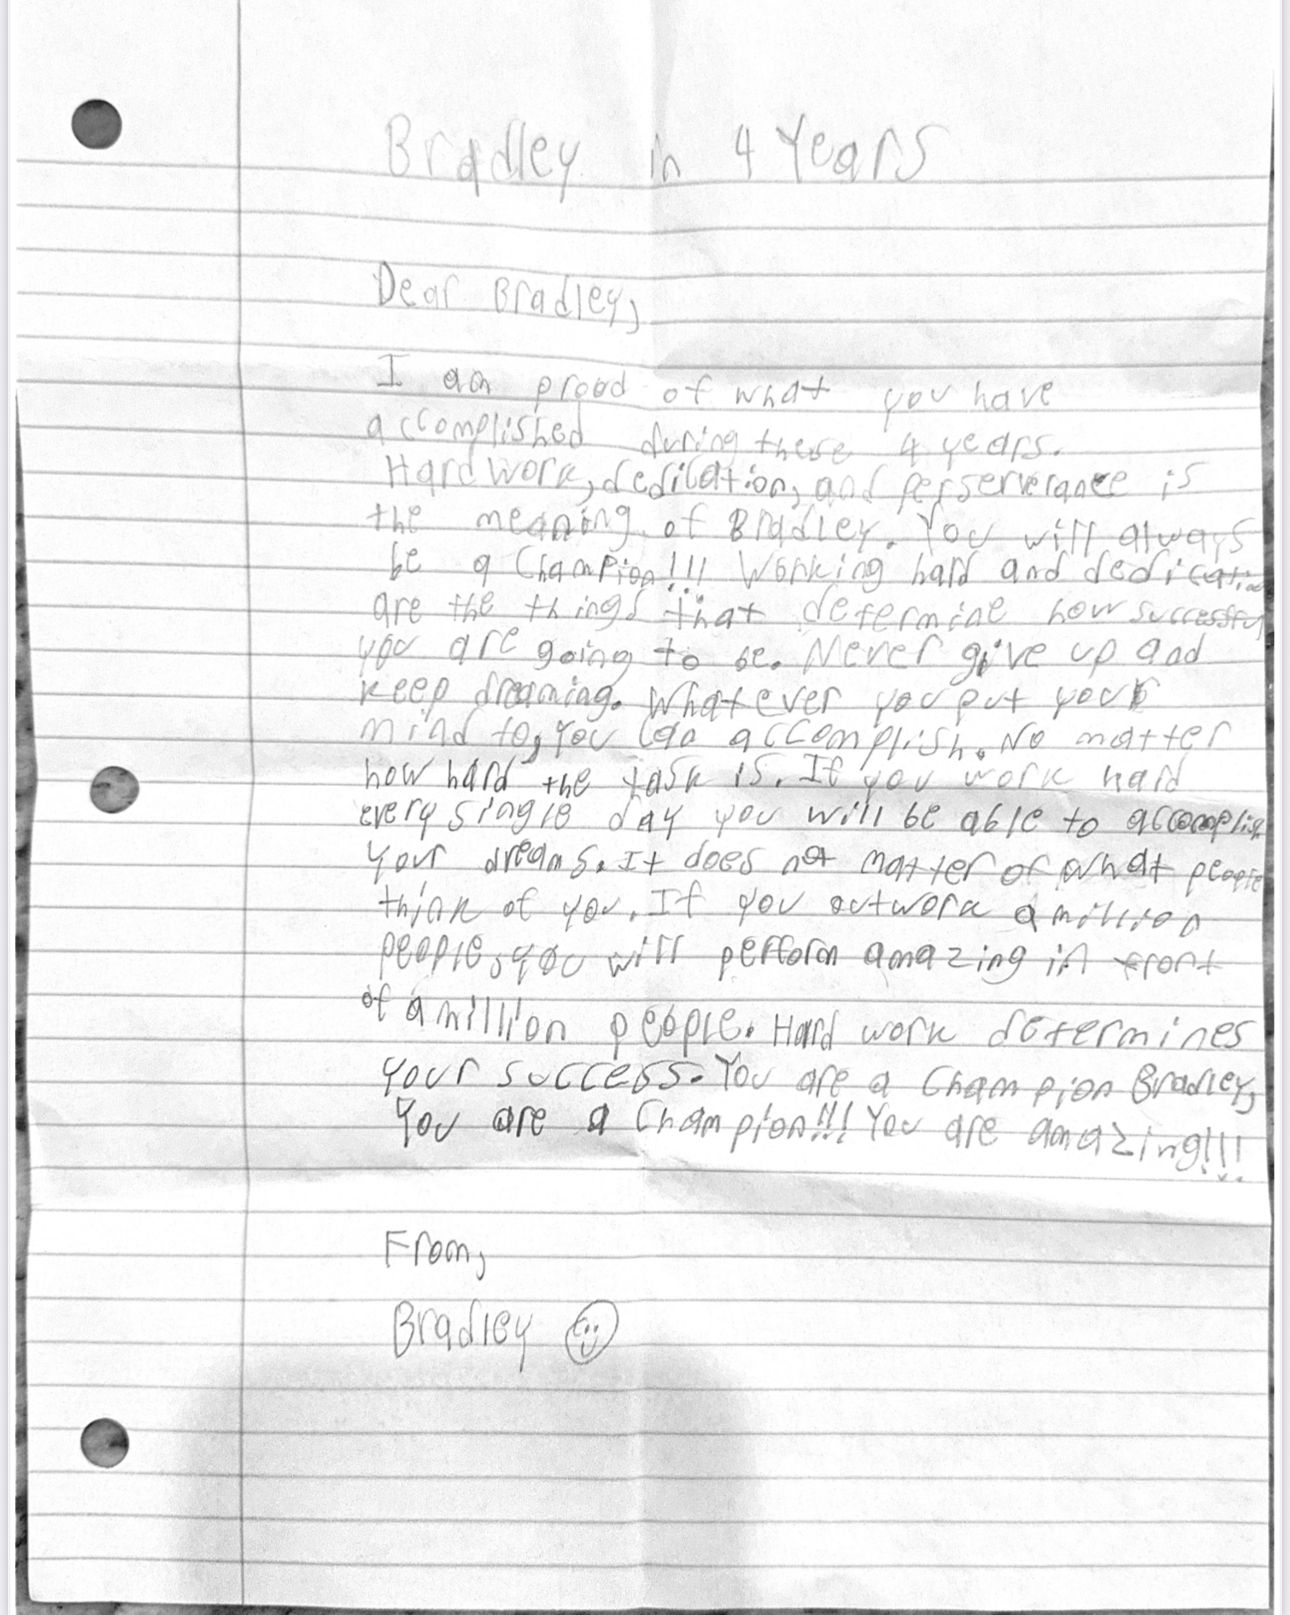 Bradley in 4 Years
Dear Bradley,
I am prood of what you have
accomplished during these 4 years.
Hard work, dedication, and perserverance is
the meaning of Bradley. You will always
be a Champion!!! Working hard and dedication
are the things that determine how successful
you are going to be. Never give up and
keep dreaming. Whatever you put your
mind to, you can accomplish. No matter
how hard the task is. If you work hard
every single day you will be able to accomplish
your dreams. It does not matter of what people
think of you. If you outwork a million
people, you will perform amazing in front
of a million people. Hard work determines
your success. You are a Champion Bradley,
You are a Champion!!! You are amazing!!!
From,
Bradley